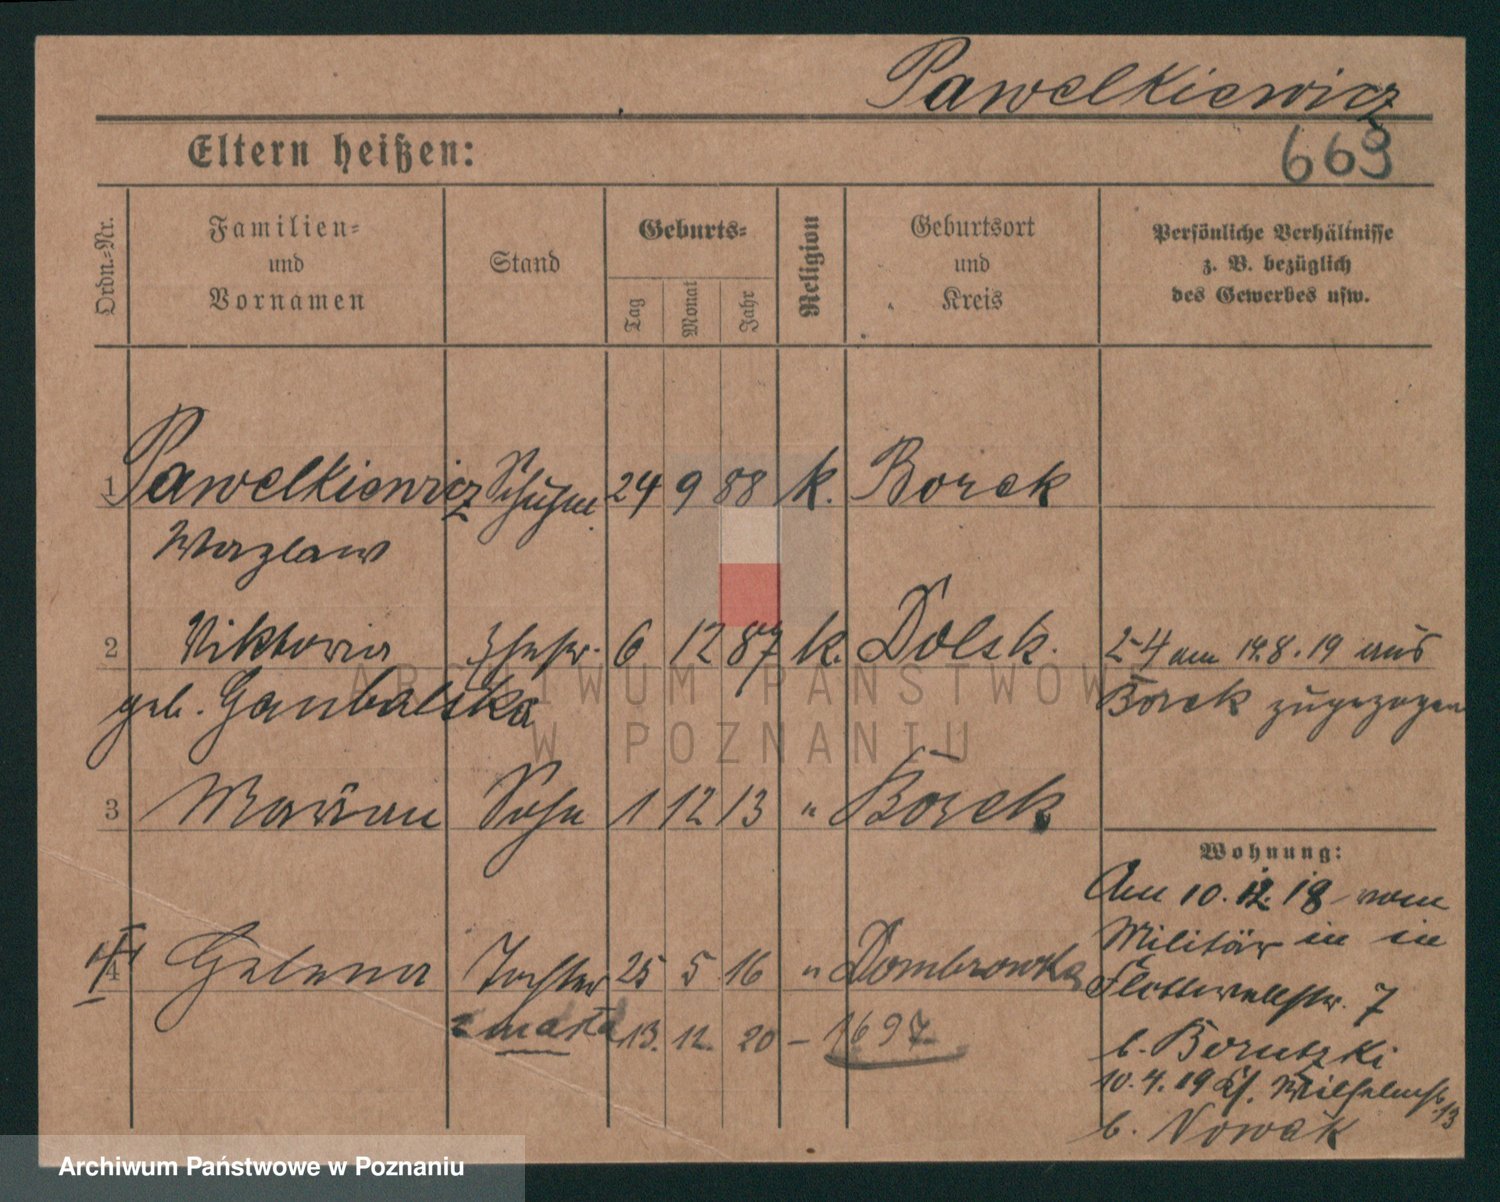 Pawelkiewicz
Eltern heißen:
669
Ordn.-Nr.
Familien-
und
Vornamen
Stand
Geburts-
Tag
Monat
Jahr
Religion
Geburtsort
und
Kreis
Persönliche Verhältnisse
z. B. bezüglich
des Gewerbes usw.
1 Pawelkiewicz Schuhm. 24 9 88 k. Borek
Wazlaw
2 Viktoria Ehefr. 6 12 87 k. Dolsk. 2-4 am 19.8.19 aus
geb. Borek zugezogen
3 Marian Sohn 1 12 13 " Borek
Wohnung:
Am 10.12.18 vom
Militär in
4 Helena Tochter 25 5 16 " Dombrowka
Flottwellstr. 7
zmarła 13. 12. 20 – 1697
b. Borutzki
10.4.19 Kl. Wilhelmstr. 13
b. Nowak
ARCHIWUM PAŃSTWOWE
W POZNANIU
Archiwum Państwowe w Poznaniu